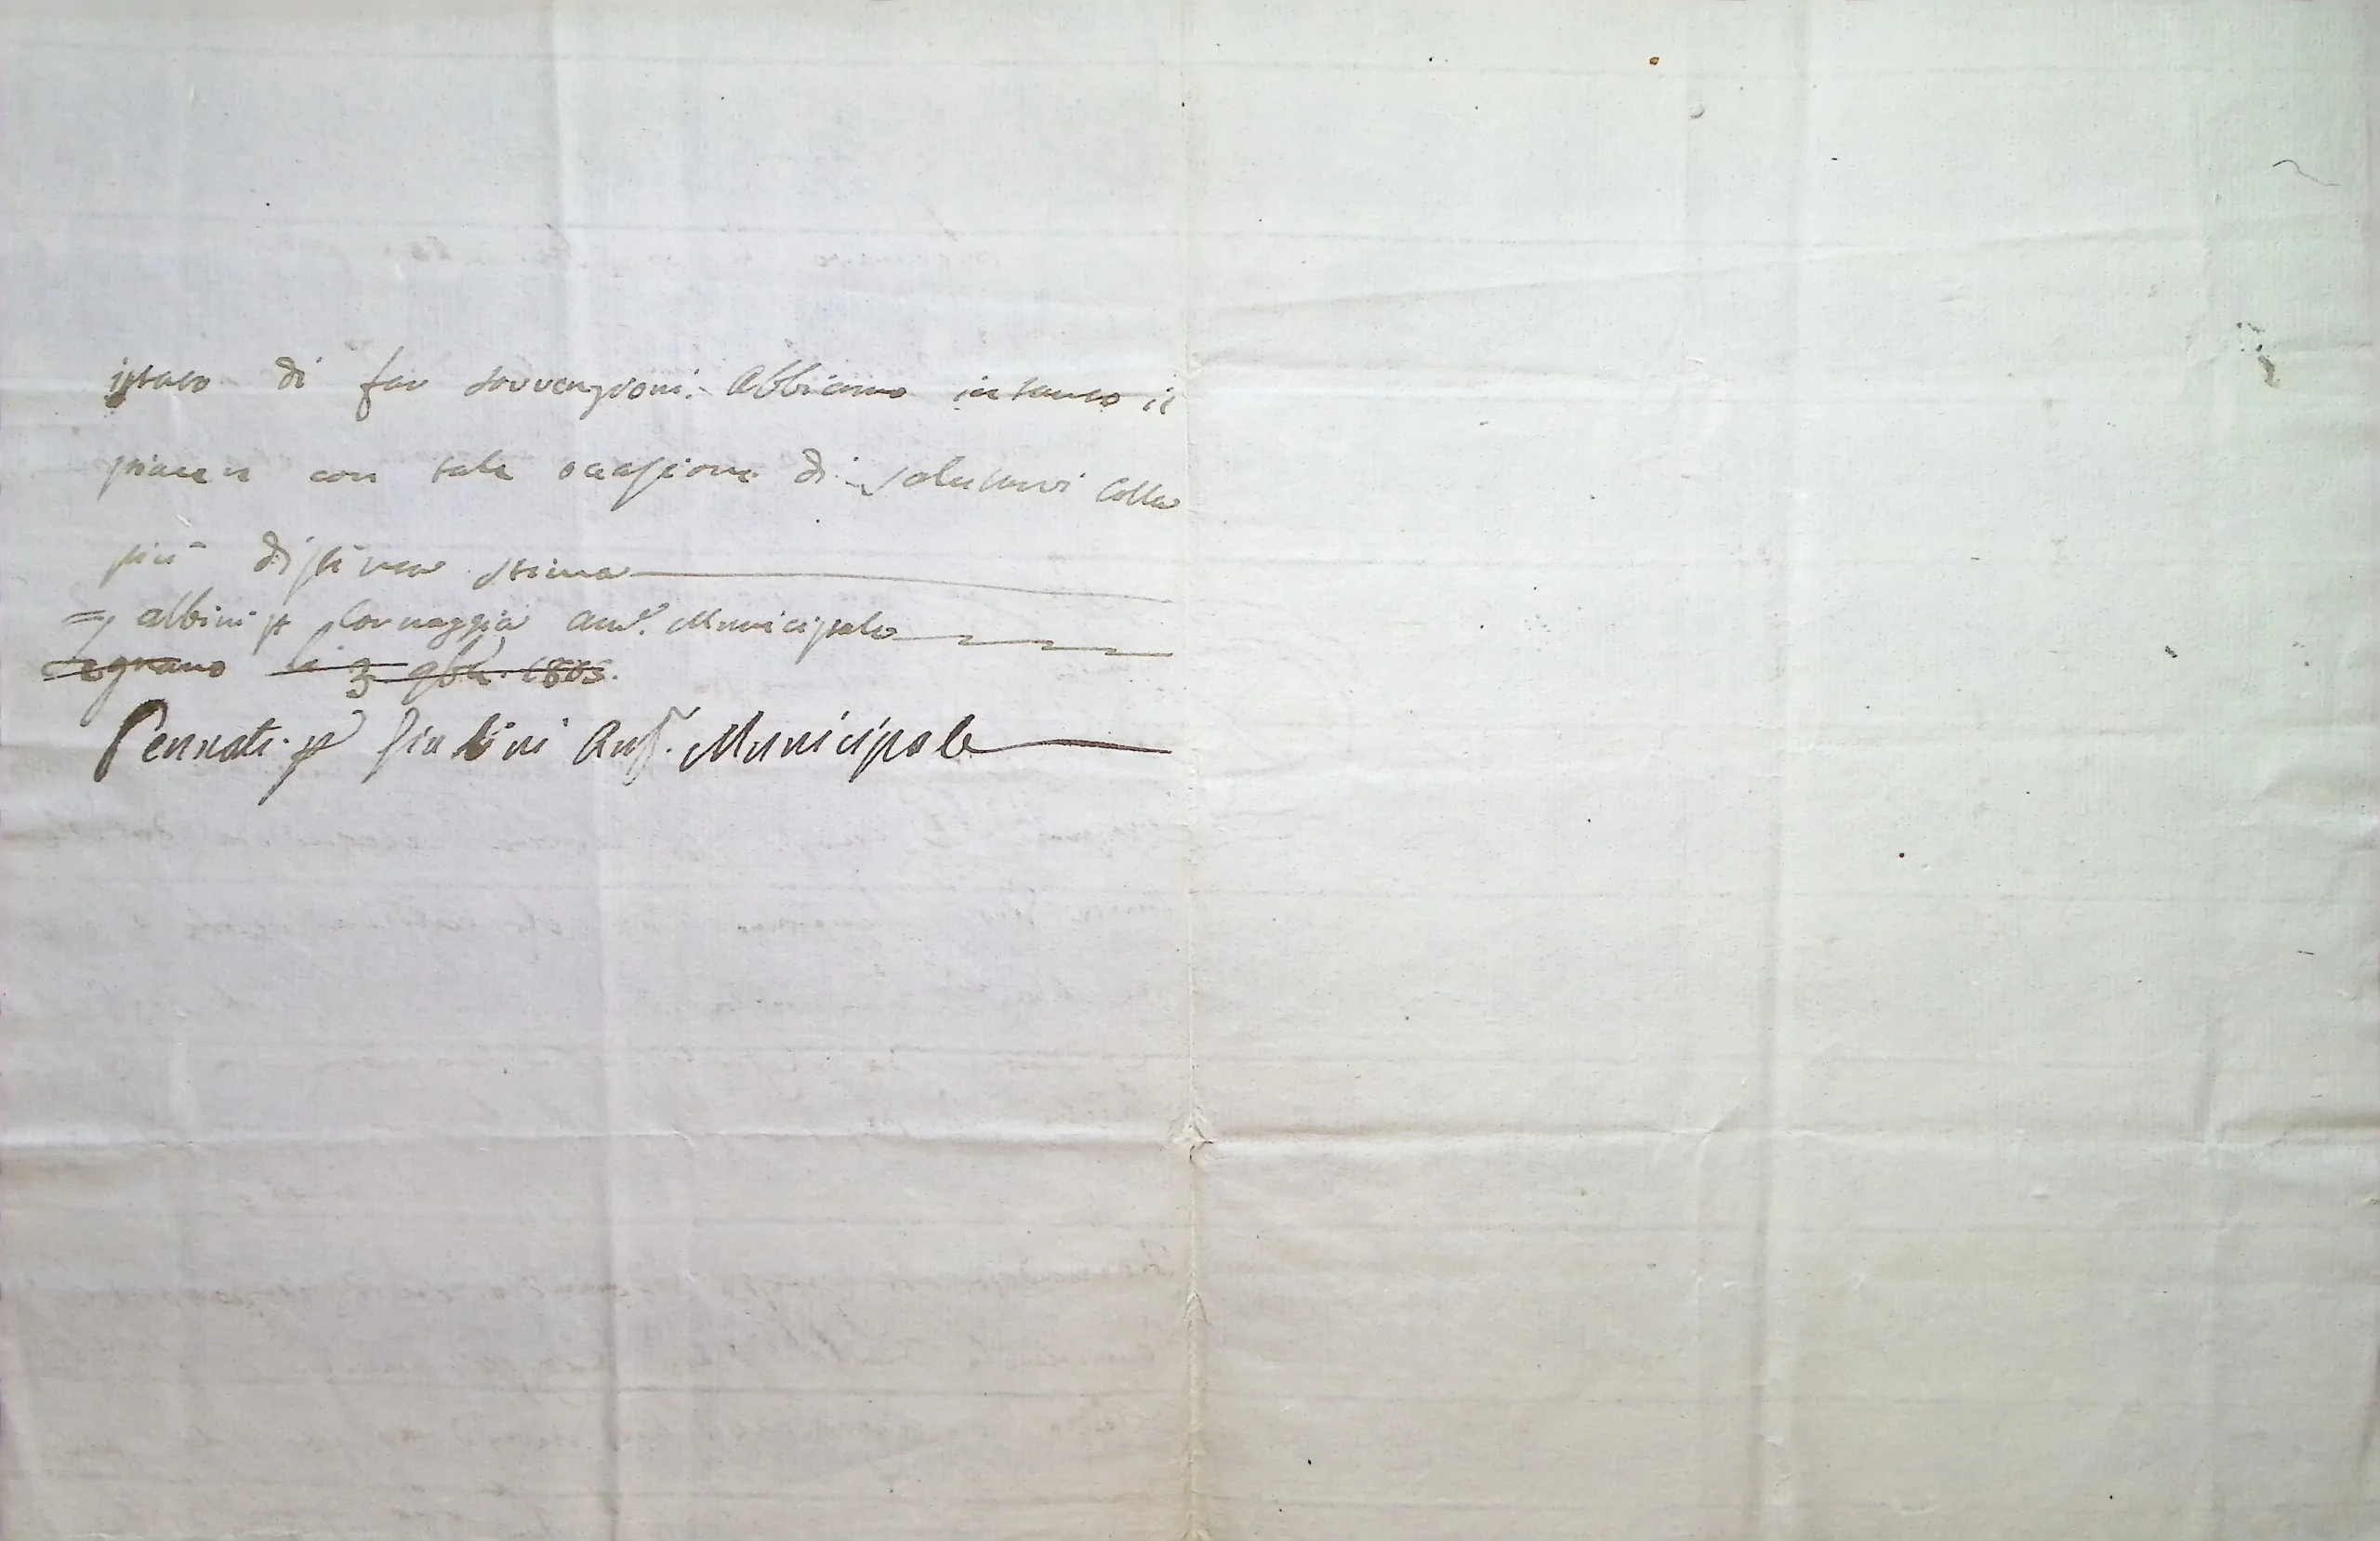 istato di far sovvenzioni. Abbiamo intanto il
piacere con tale occasione di salutarvi colla
più distinta stima
= Albini p Cornaggia Ant. Municipale
Legnano li 3 9bre 1805.
Pennati p Giulini Ant. Municipale